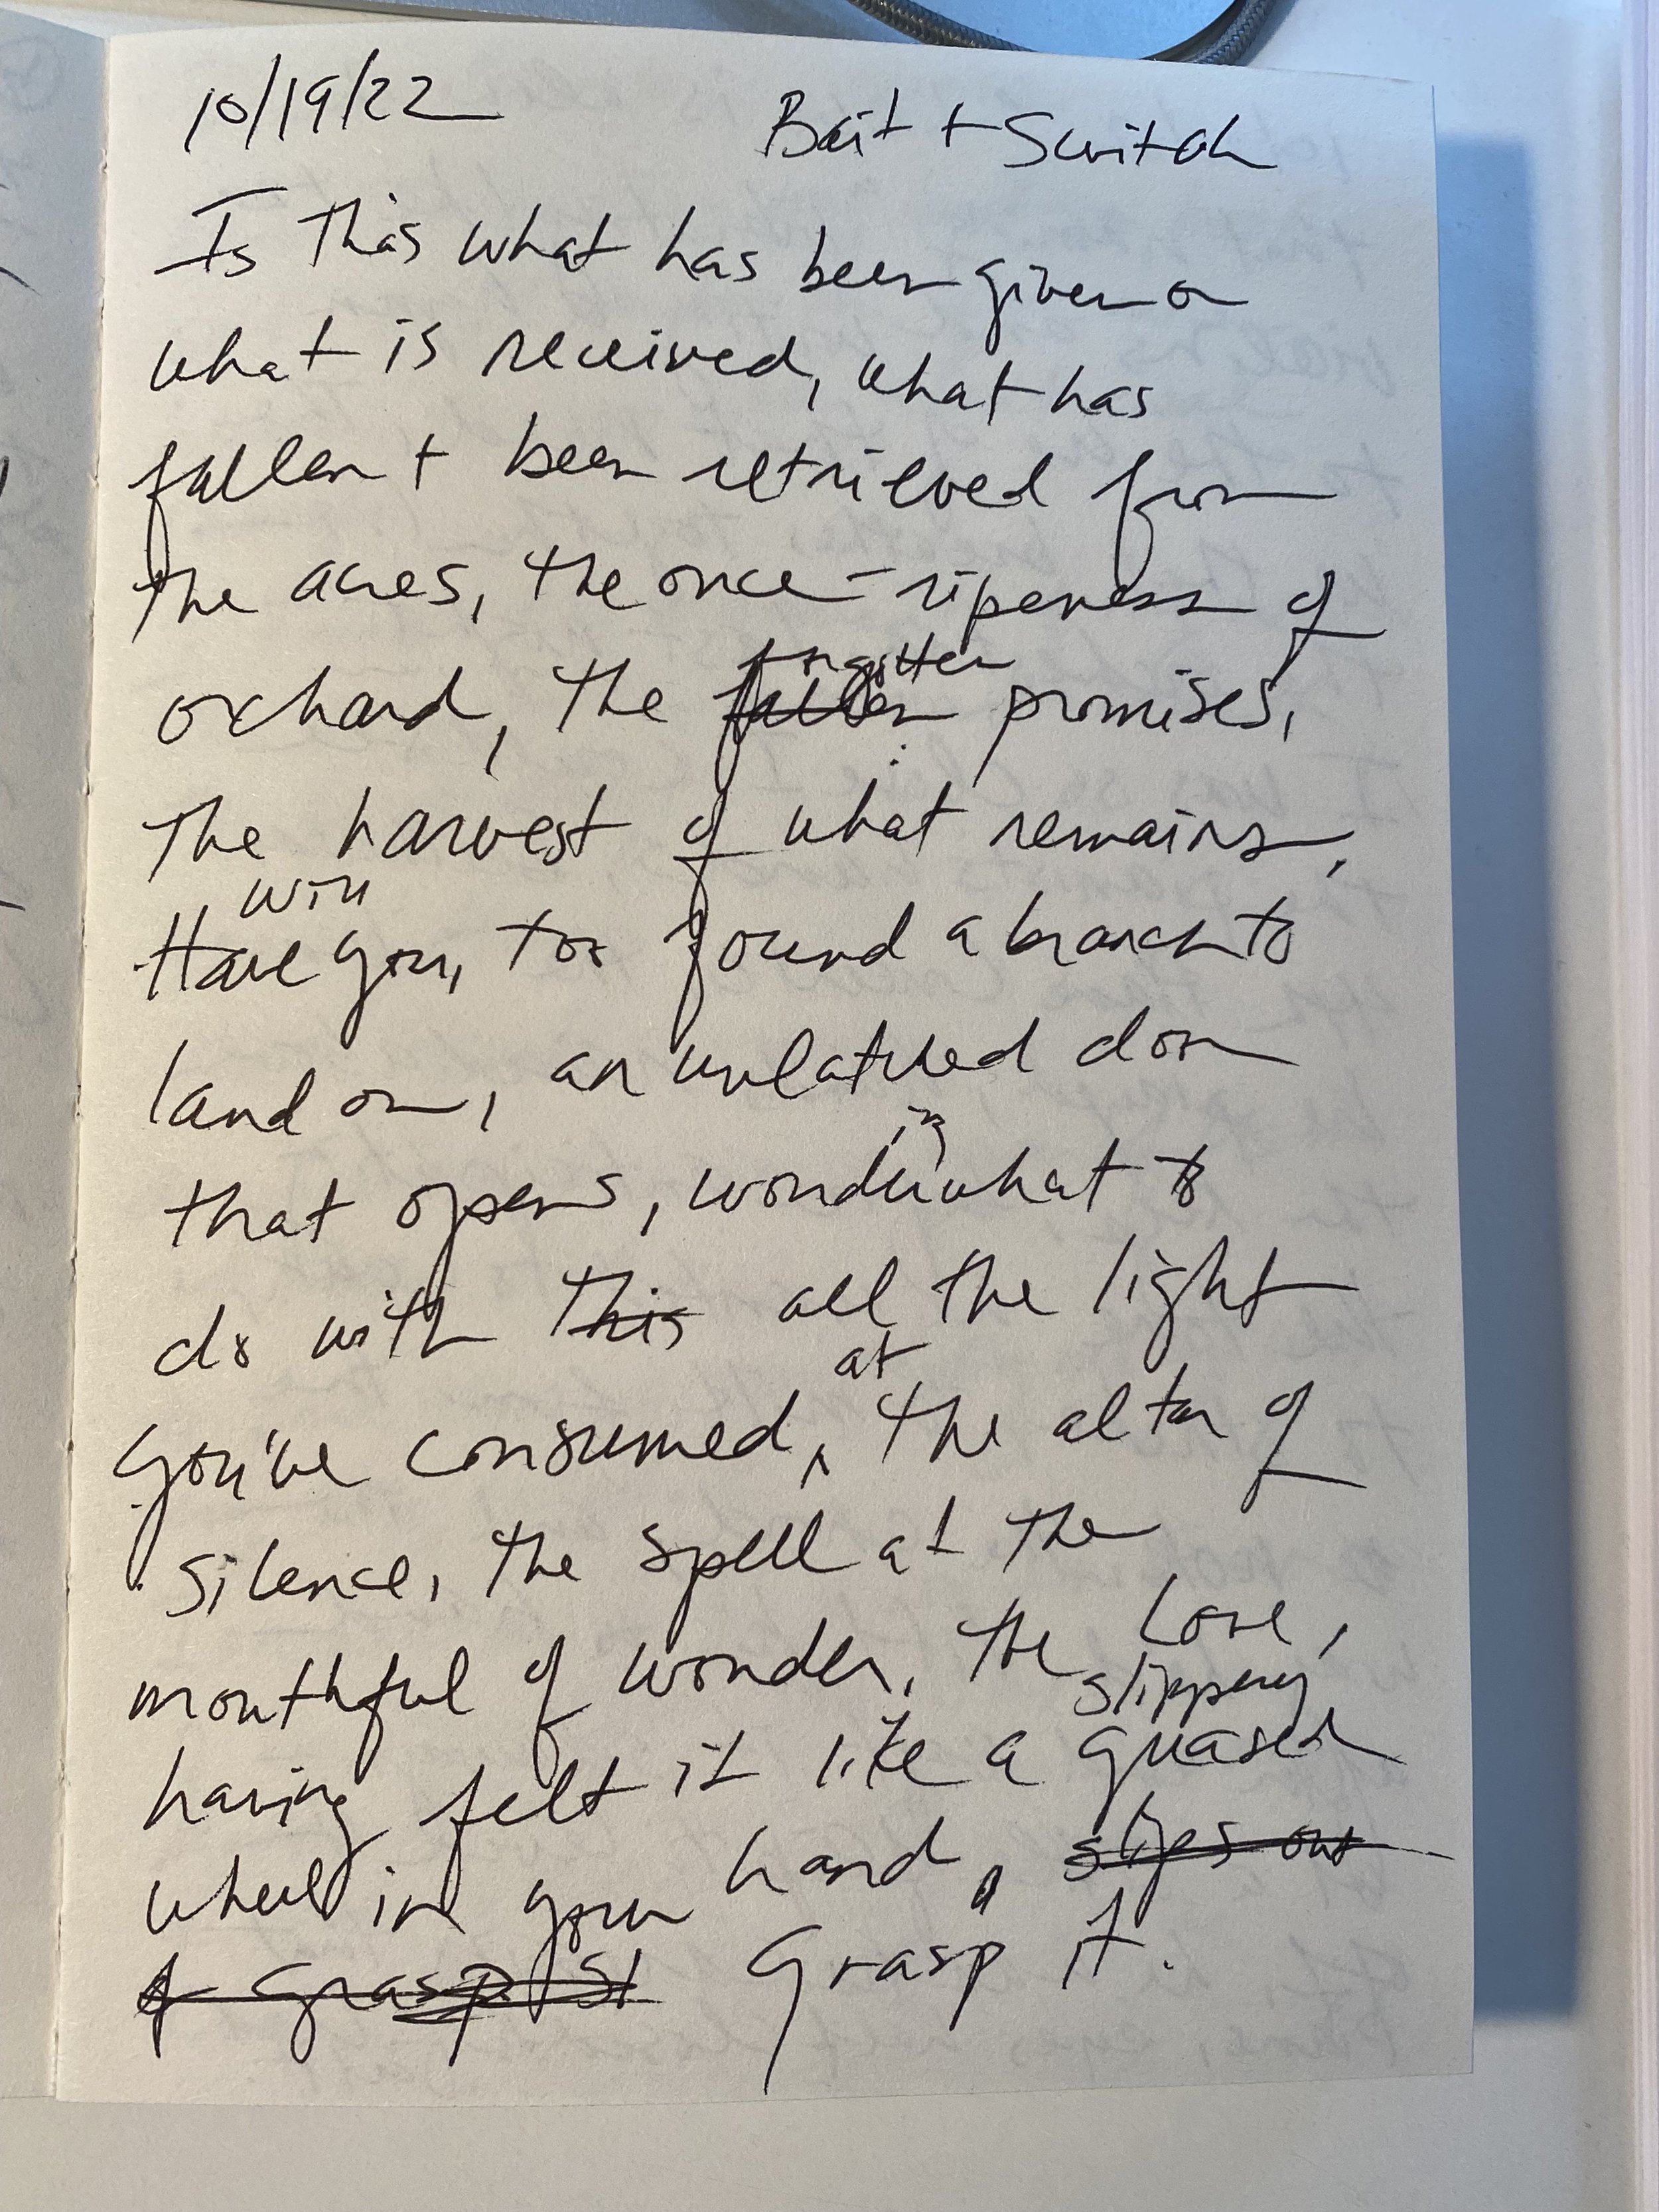 10/19/22 Bait + Switch
Is this what has been given or
what is received, what has
fallen + been retrieved from
the acres, the once-ripeness of
orchard, the forgotten promises,
The harvest of what remains,
will
Have you, too found a branch to
land on, an unlatched door
ing
that opens, wonder what to
do with this all the light
at
you've consumed, the altar of
silence, the spell at the
mouthful of wonder, the love,
slippery
having felt it like a greased
wheel in your hand, slips out
grasp Grasp it.